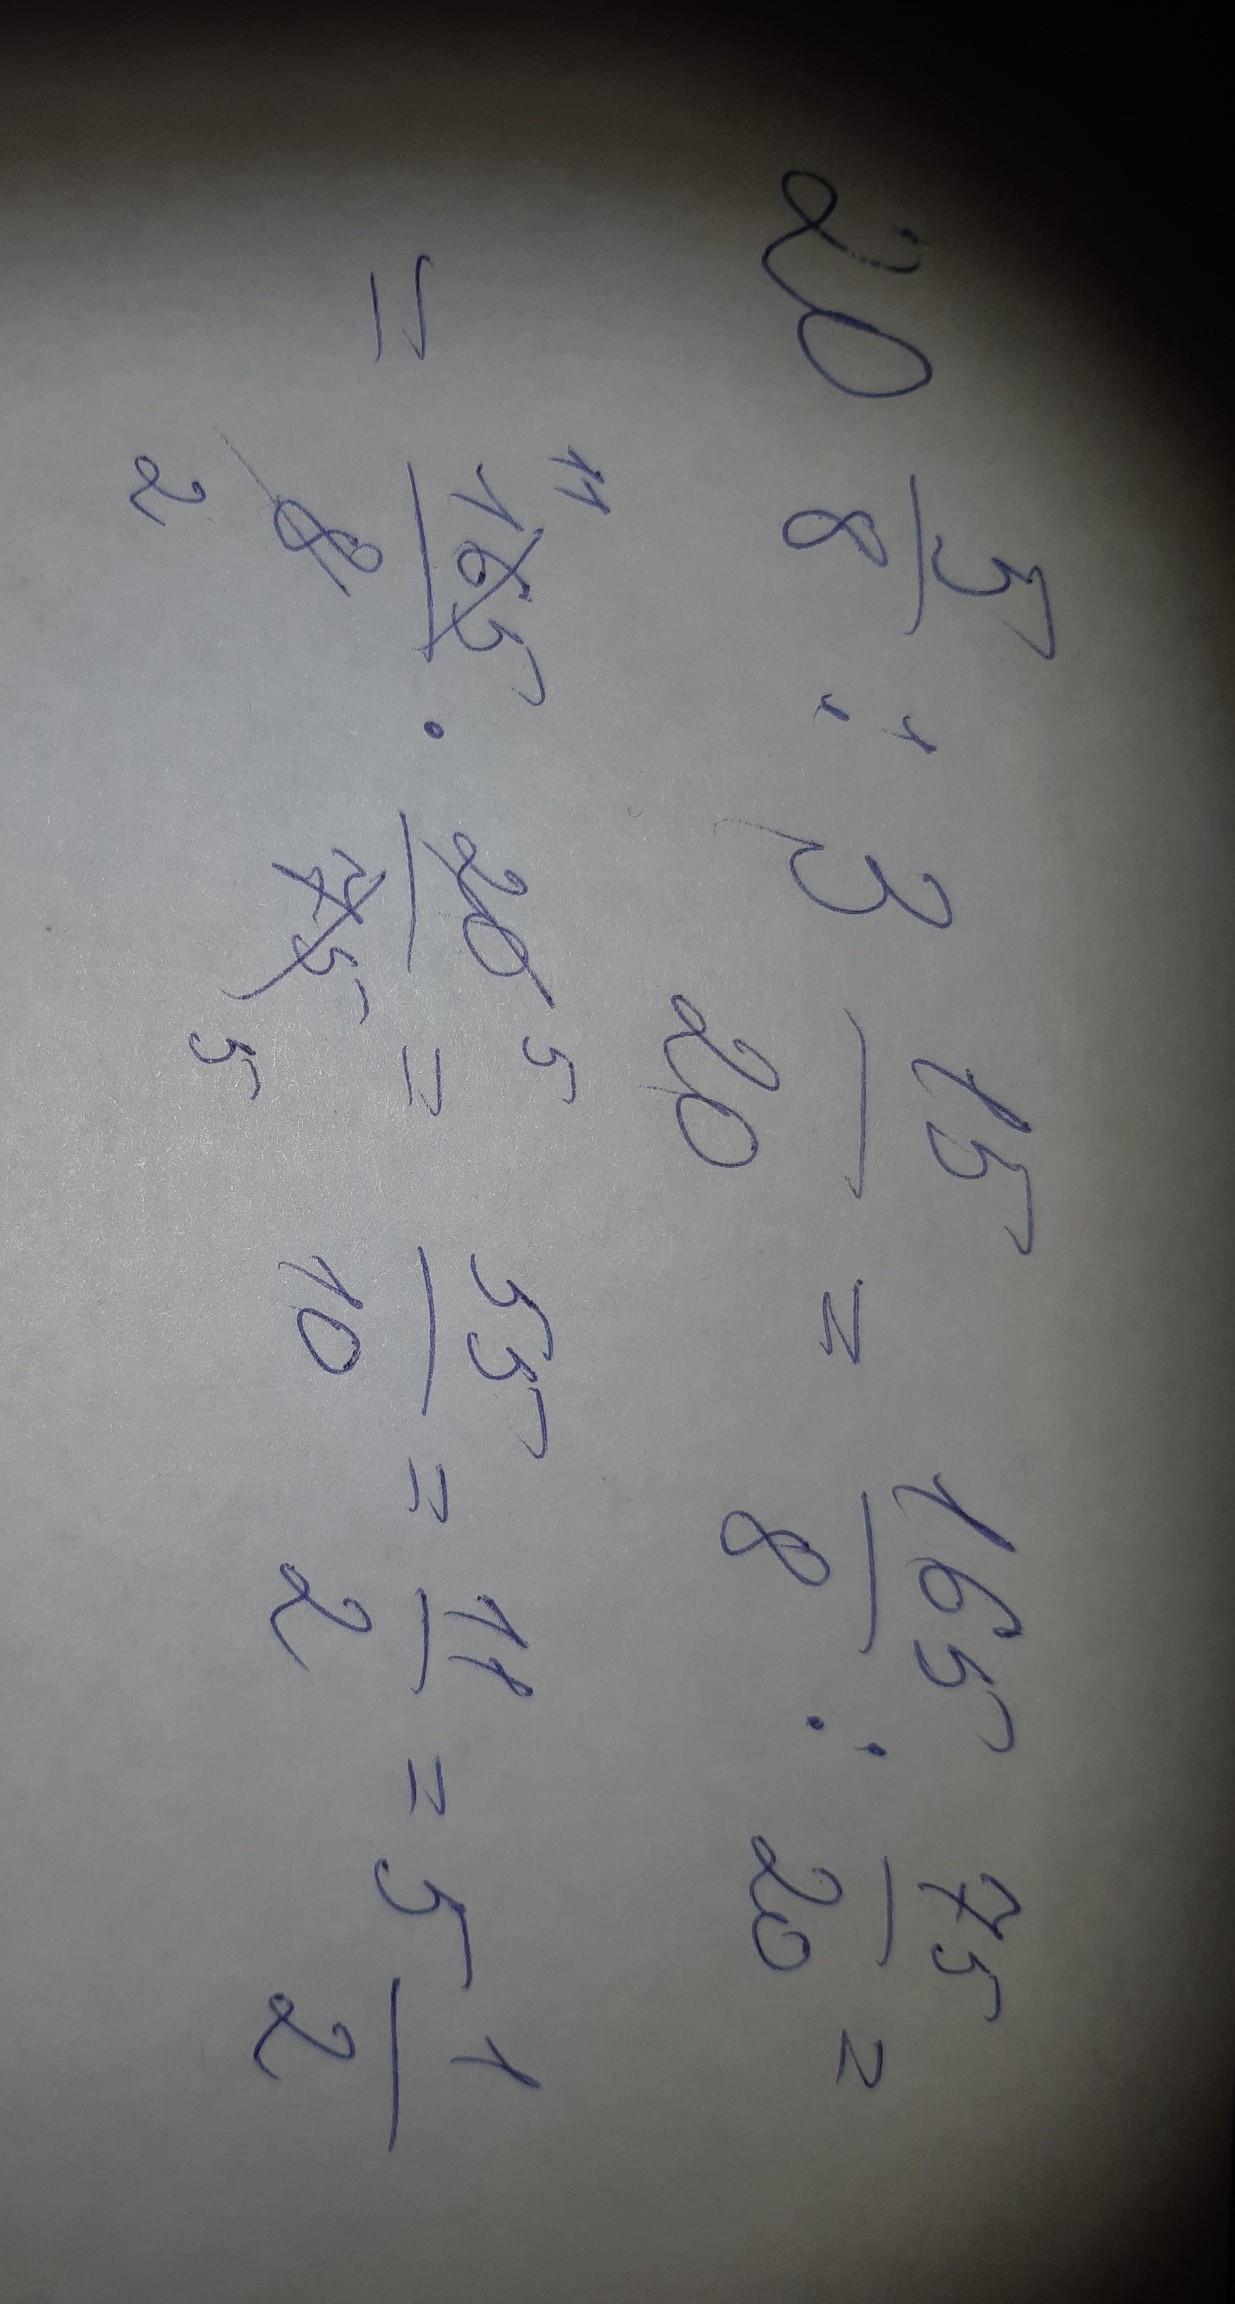 20 5/8 : 3 15/20 = 165/8 : 75/20 =
= 165/8 11 2 · 20/75 5 5 = 55/10 = 11/2 = 5 1/2